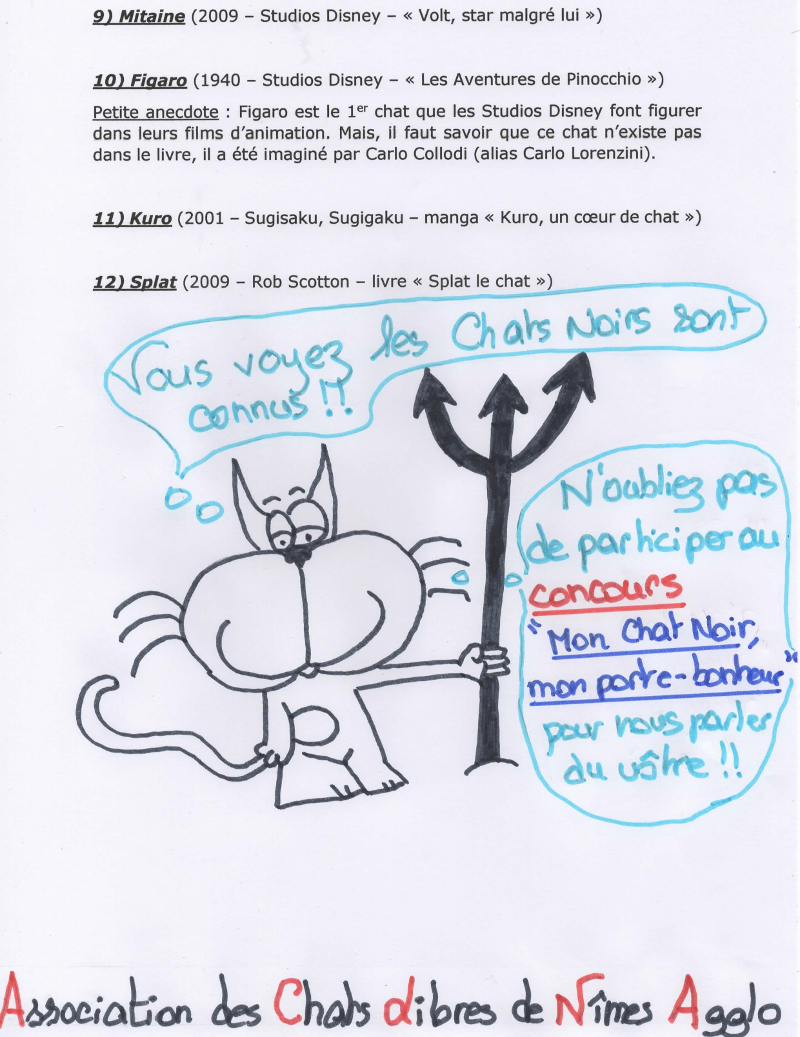 9) Mitaine (2009 – Studios Disney – « Volt, star malgré lui »)
10) Figaro (1940 – Studios Disney – « Les Aventures de Pinocchio »)
Petite anecdote : Figaro est le 1er chat que les Studios Disney font figurer
dans leurs films d’animation. Mais, il faut savoir que ce chat n’existe pas
dans le livre, il a été imaginé par Carlo Collodi (alias Carlo Lorenzini).
11) Kuro (2001 – Sugisaku, Sugigaku – manga « Kuro, un cœur de chat »)
12) Splat (2009 – Rob Scotton – livre « Splat le chat »)
Vous voyez les Chats Noirs sont
connus !!
N'oubliez pas
de participer au
concours
"Mon Chat Noir,
mon porte-bonheur"
pour nous parler
du vôtre !!
Association des Chats Libres de Nîmes Agglo